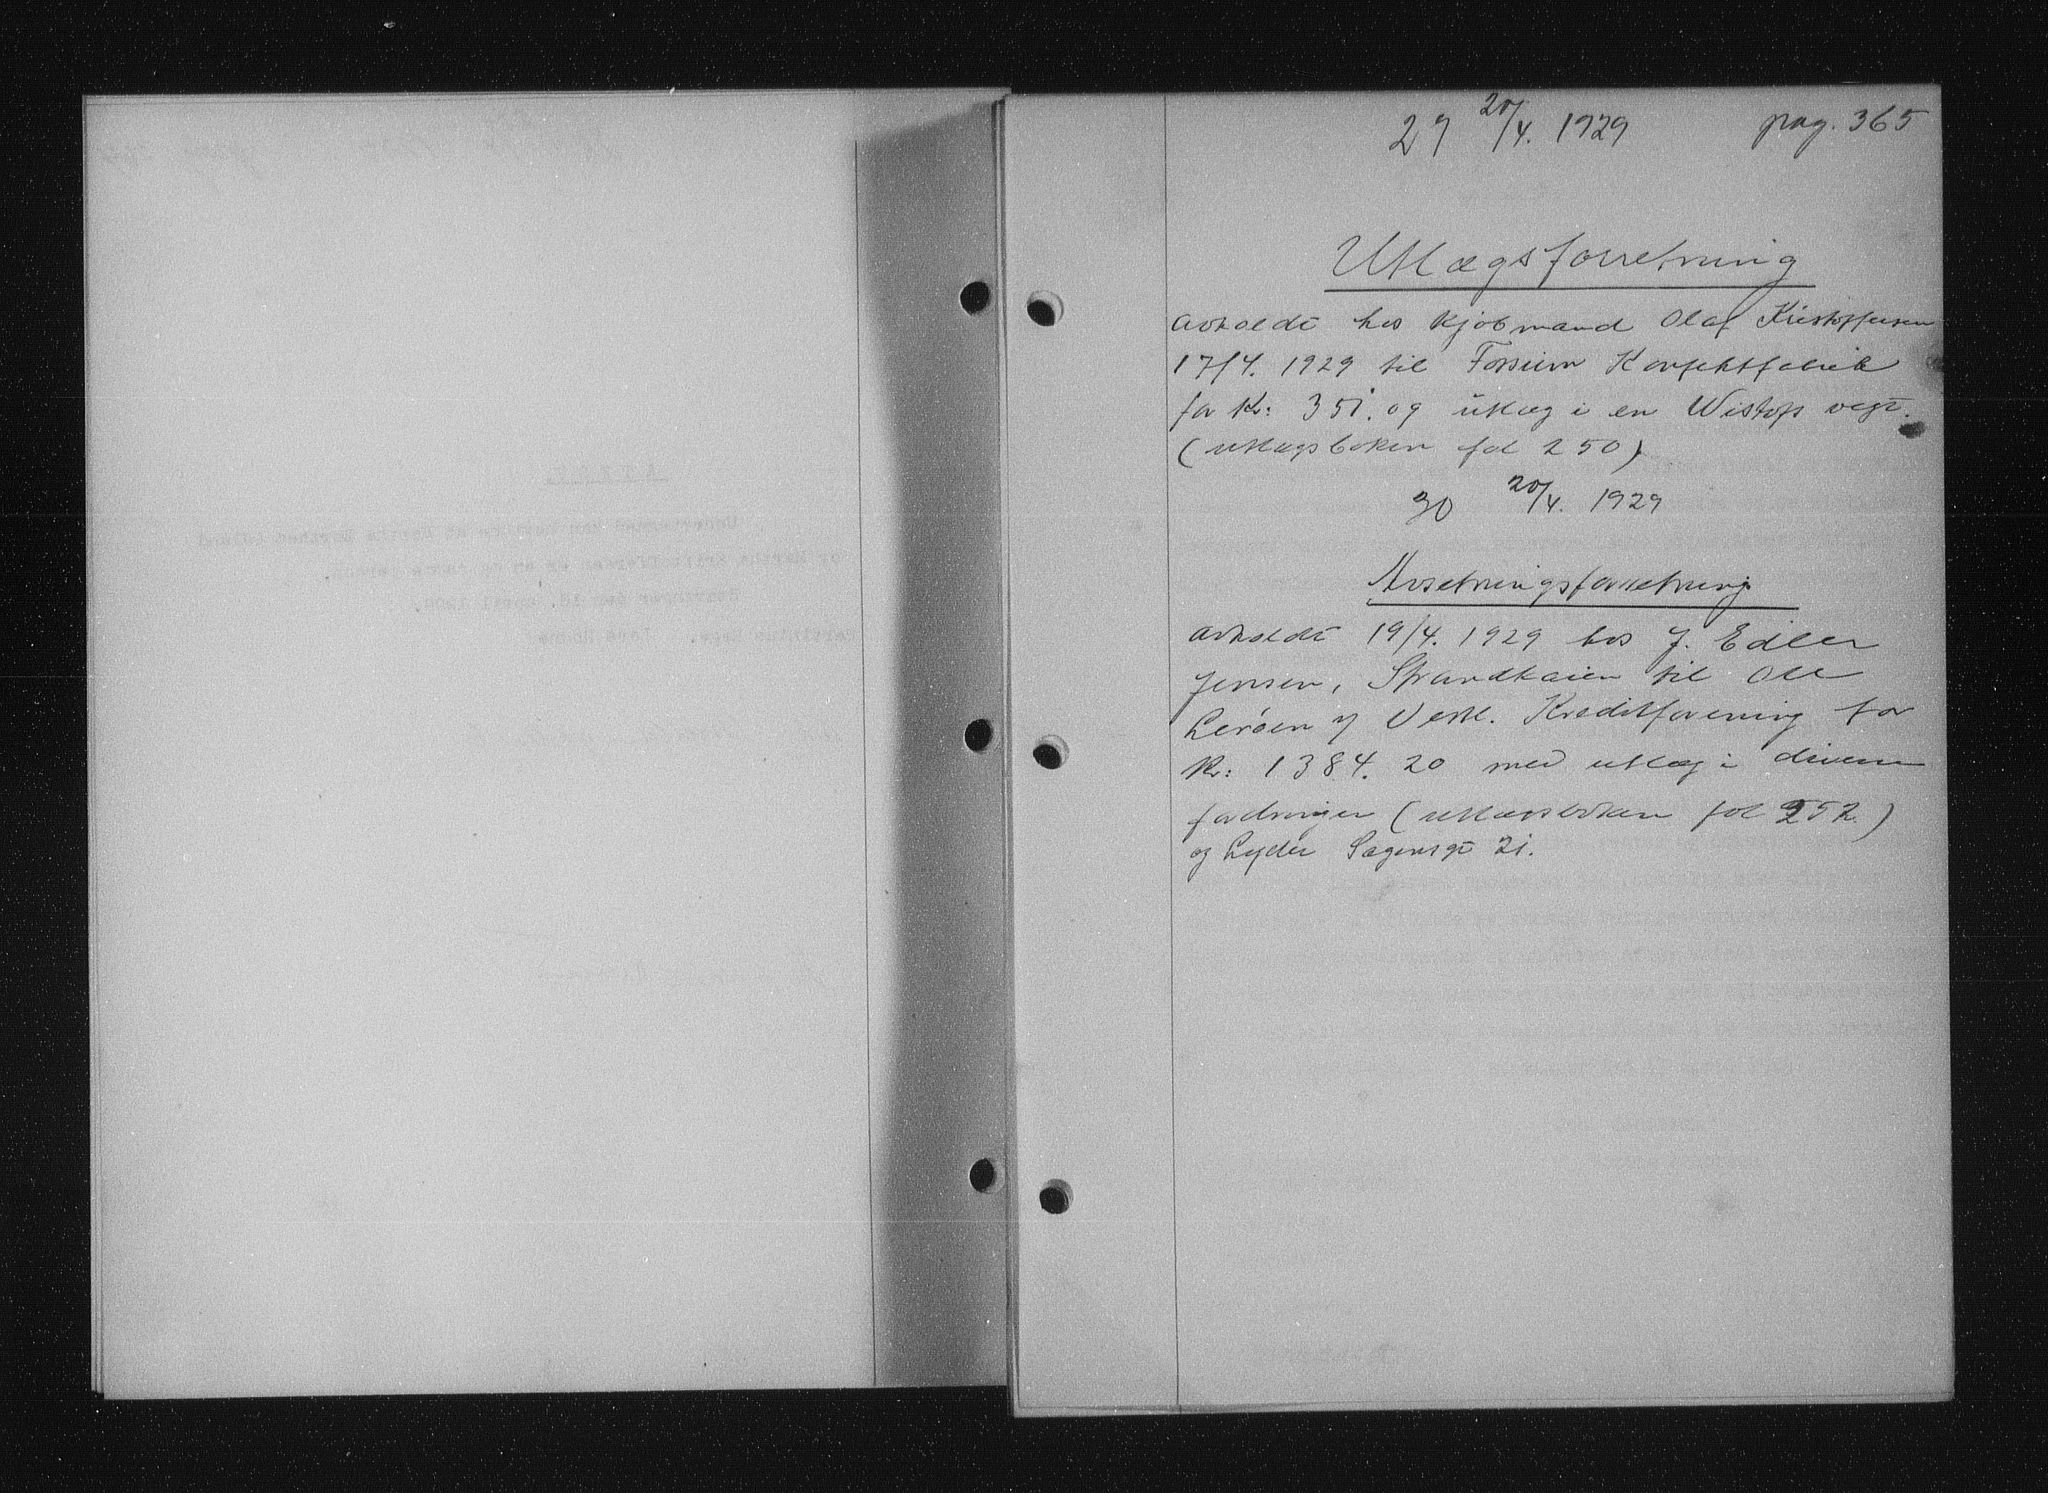 29 20/4. 1929 pag. 365
Utlægsforretning
avholdt hos kjøbmand Olaf Kristoffersen
17/4. 1929 til Konfektfabrik
for kr: 351. og utlæg i en vegt.
(utlægsboken fol 250)
30 20/4. 1929
Avsetningsforretning
avholdt 19/4. 1929 hos J. Edler
Jensen, Strandkaien til Ole
Lerøen v/ Vestl. Kreditforening for
kr: 1384.20 med utlæg i diverse
fordringer (utlægsboken fol 252)
og Lyder Sagensgt 21.